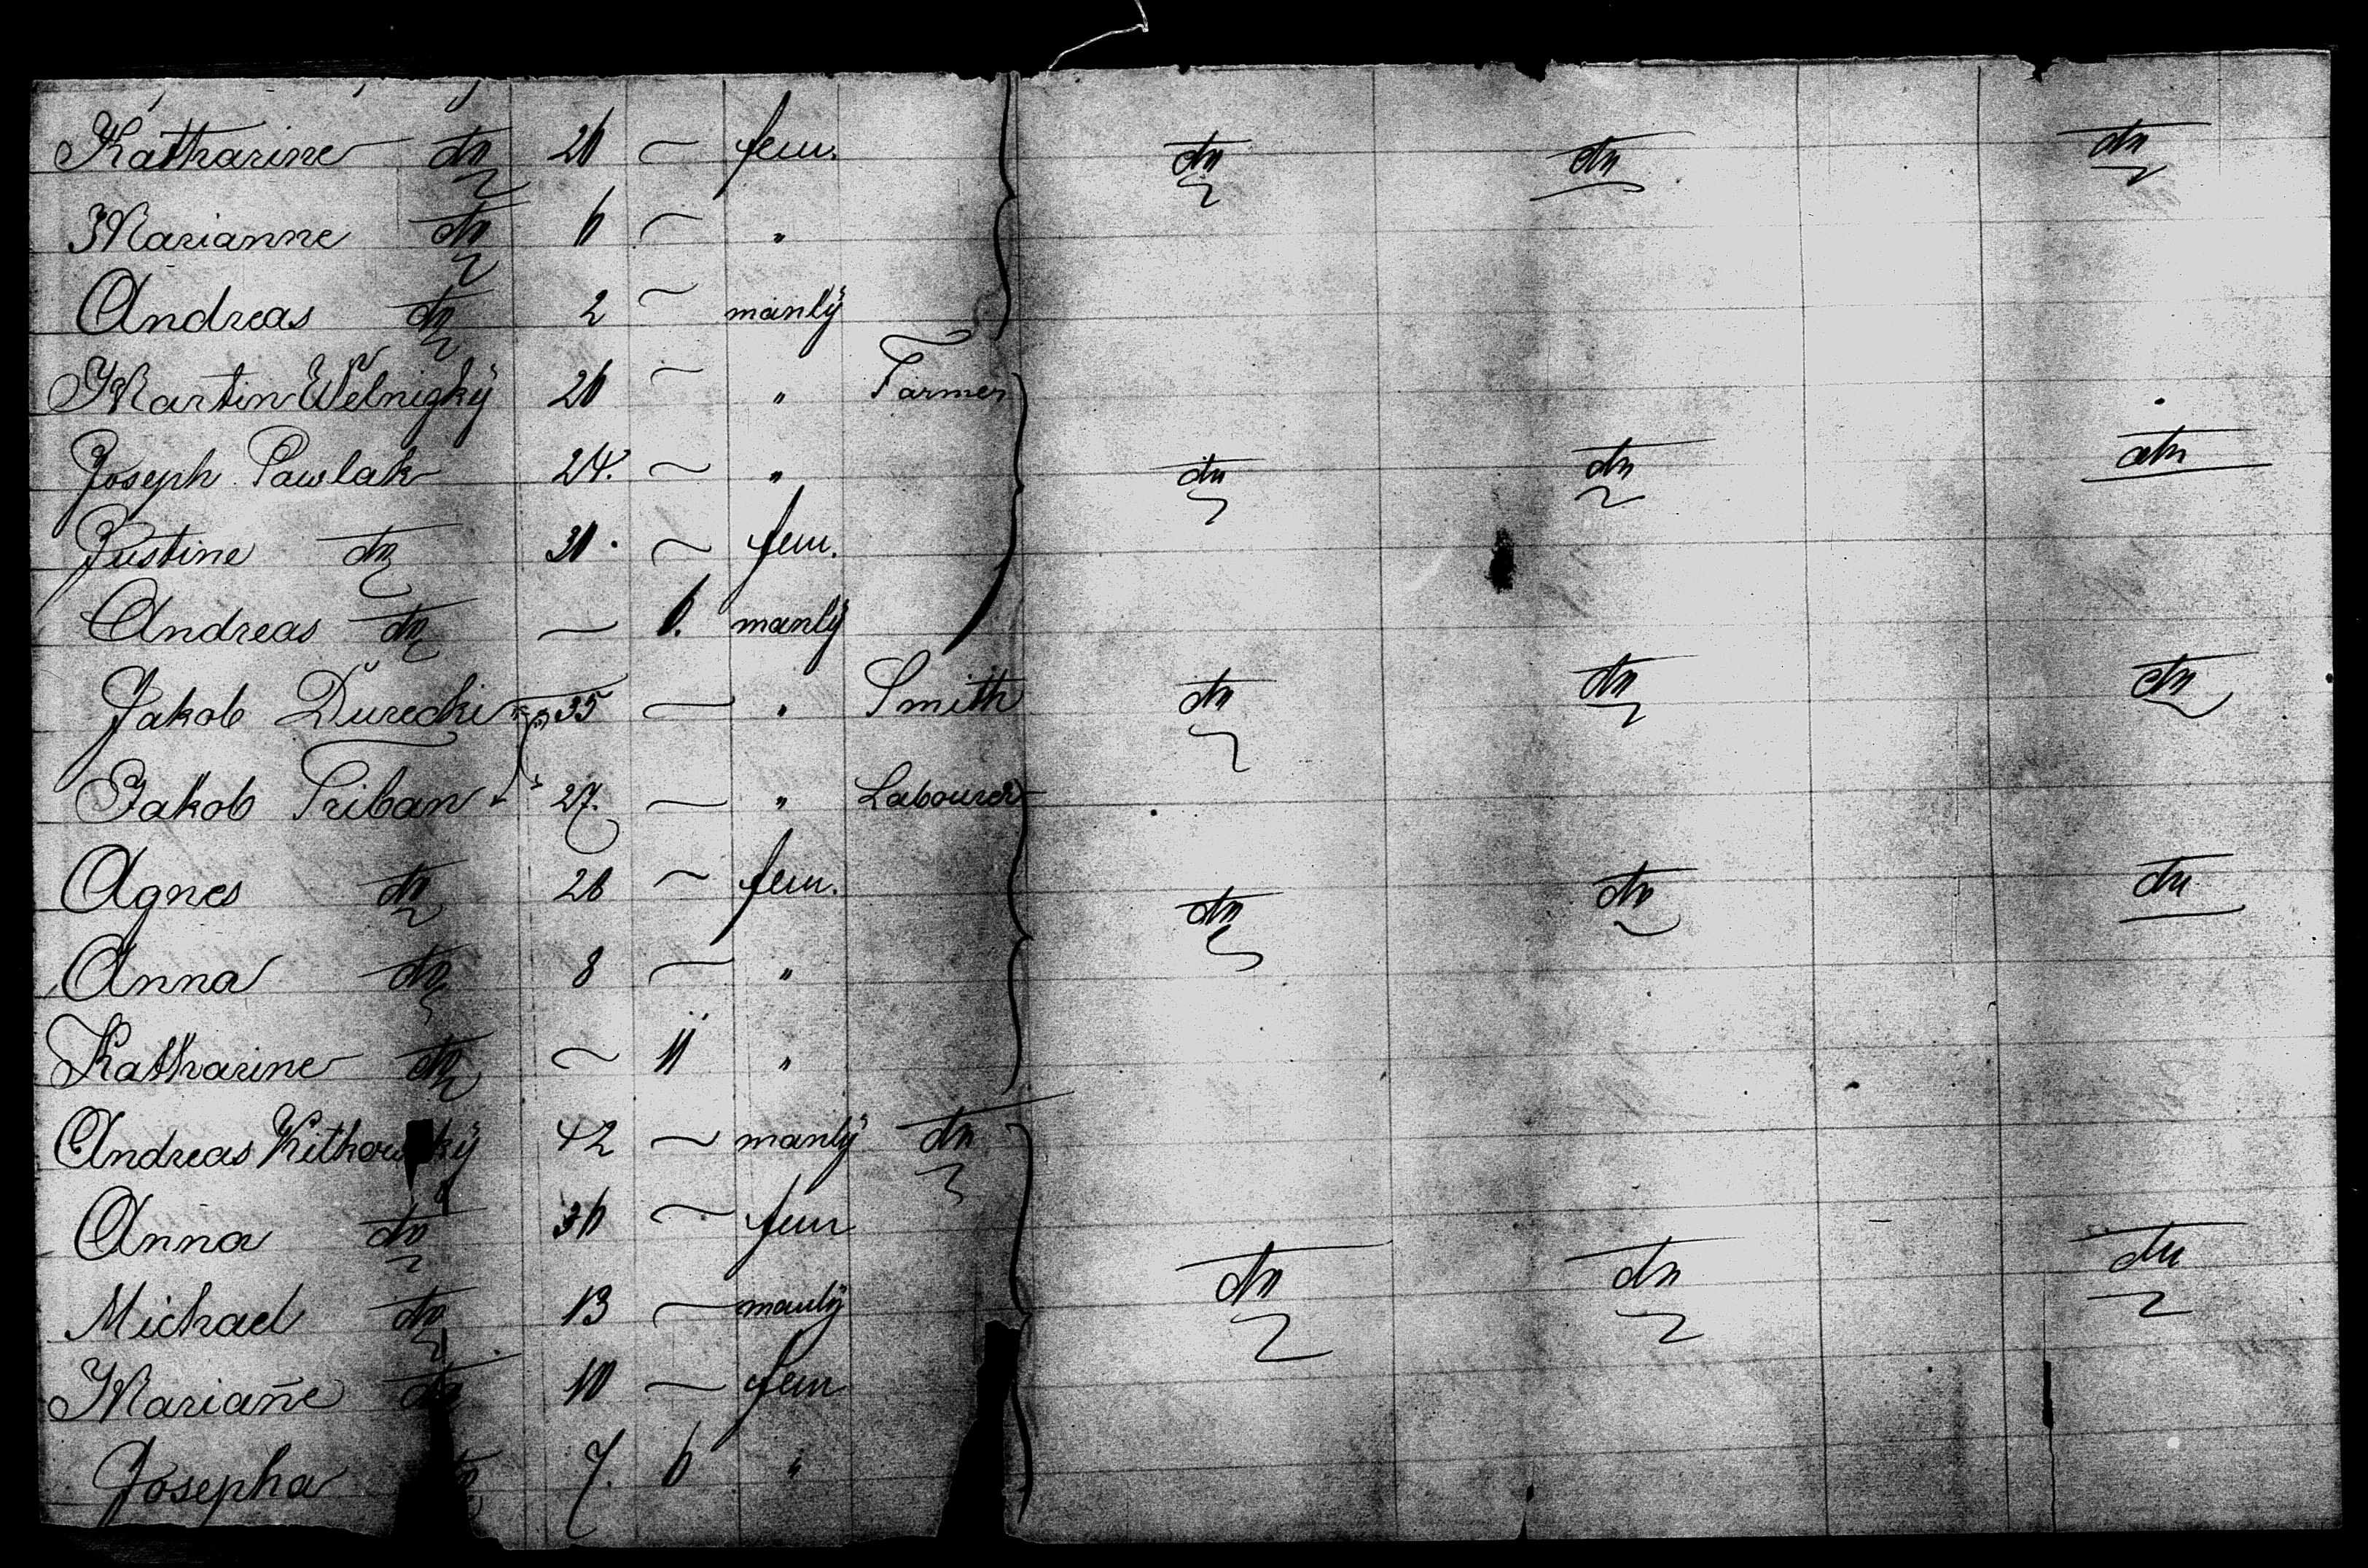 Katharine dto 26 — fem. dto dto dto
Marianne dto 6 — "
Andreas dto 2 — manlÿ
Martin Welnigkÿ 26 — " Farmer
Joseph Pawlak 24. — " dto dto dto
Justine dto 30. — fem.
Andreas dto — 6. manlÿ
Jakob Durecki 35 — " Smith dto dto dto
Jakob Triban 27. — " Labourer
Agnes dto 26 — fem. dto dto dto
Anna dto 8 — "
Katharine dto — 11 "
Andreas kÿ 42 — manlÿ dto
Anna dto 36 — fem
Michael dto 13 — manlÿ dto dto dto
Mariañe dto 10 — fem
Josepha dto 7. 6 "